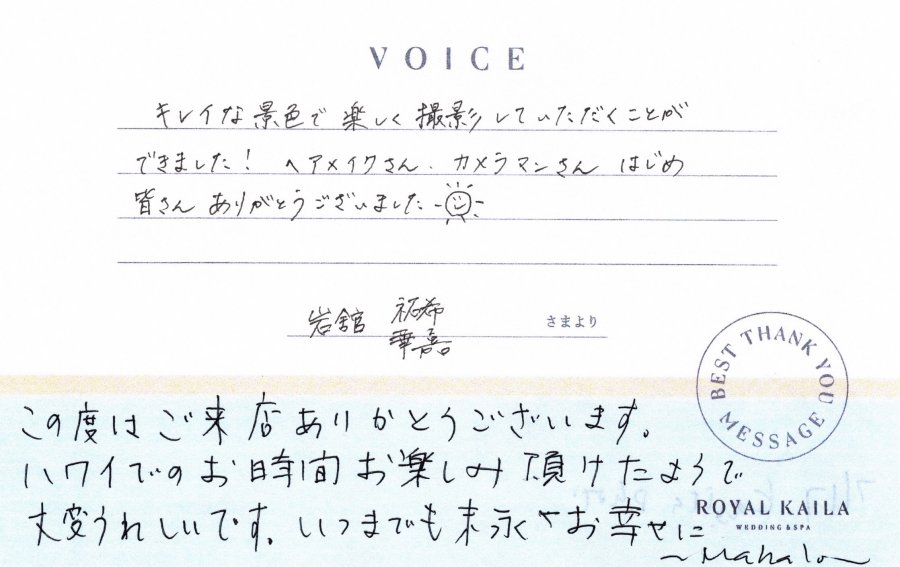 VOICE
キレイな景色で楽しく撮影していただくことが
できました! ヘアメイクさん、カメラマンさん はじめ
皆さん ありがとうございました
岩舘 祐希
華嘉
さまより
BEST THANK YOU MESSAGE
この度はご来店ありがとうございます。
ハワイでのお時間お楽しみ頂けたようで
大変うれしいです。いつまでも末永くお幸せに
〜Mahalo〜
ROYAL KAILA
WEDDING & SPA